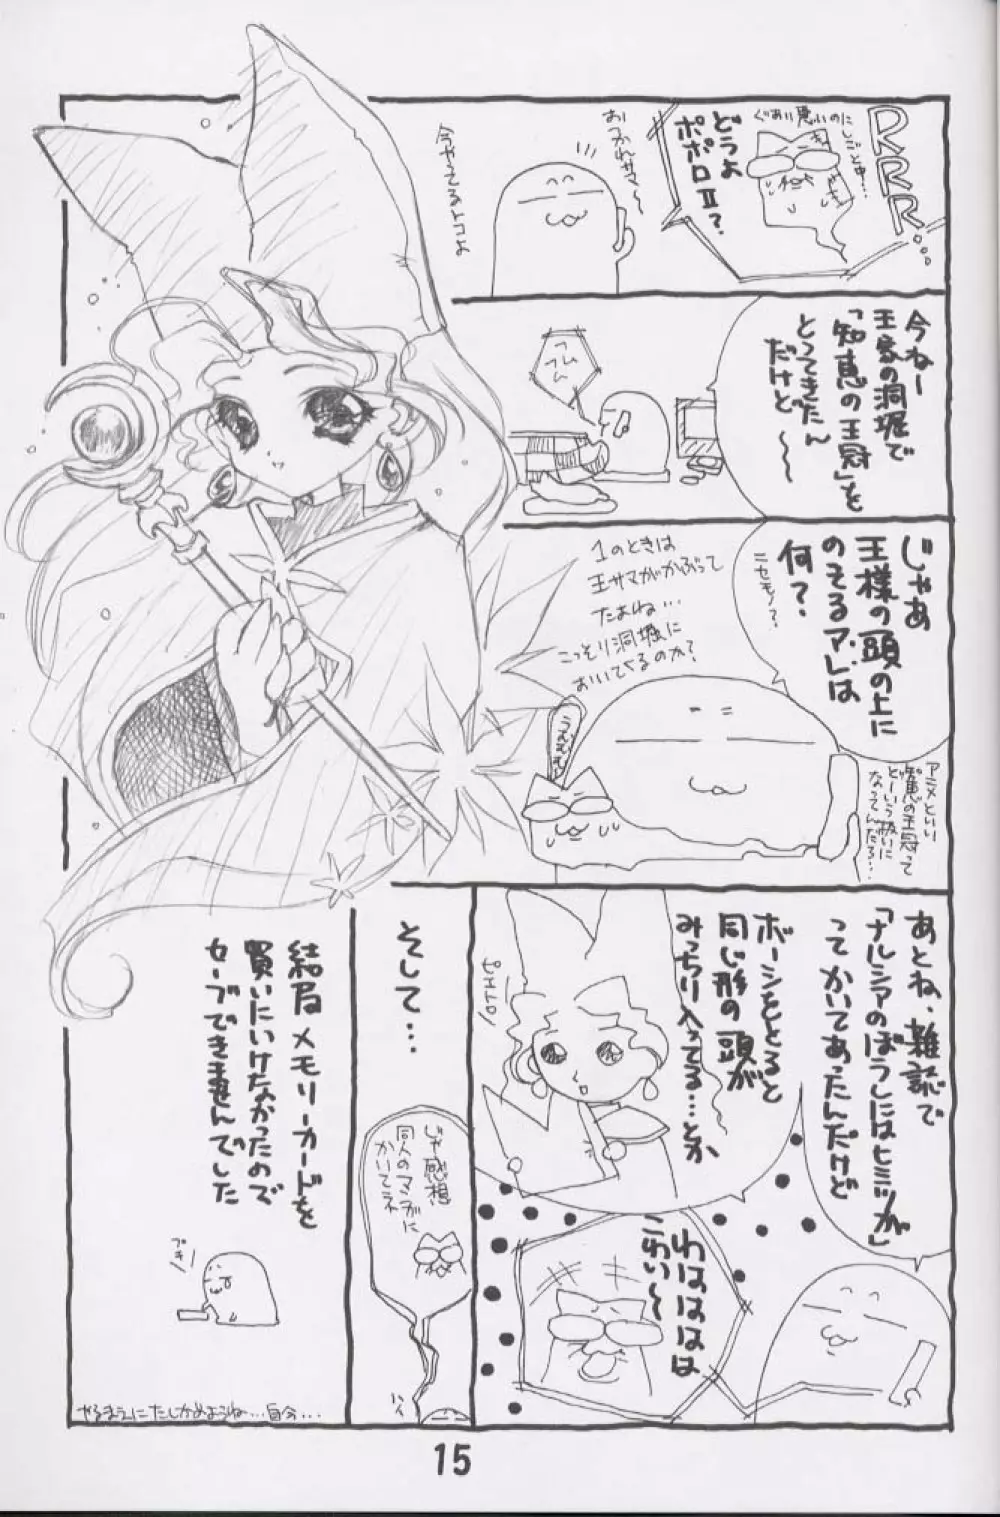 RRR...
ぐあい悪いのにしごと中…
どうよ
ポポロⅡ?
おつかれサマー
今やってるトコよ
今ねー
王家の洞堀で
「知恵の王冠」を
とってきたん
だけど〜〜
フム
フム
じゃあ
王様の頭の上に
のってるアレは
何?
ニセモノ?
1のときは
王サマがかぶって
たよね…
こっそり洞堀に
おいてくるのか?
ううむむ
アニメといい
知恵の王冠って
どーいう扱いに
なってんだろ…
あとね、雑誌で
「ナルシアのぼうしにはヒミツが」
ってかいてあったんだけど
ボーシをとると
同じ形の頭が
みっちり入ってる…とか
ピエトロ
わはははは
こわい〜
そして…
じゃ感想
同人のマンガに
かいてネ
ハイ
結局メモリーカードを
買いにいけなかったので
セーブできませんでした
プキー
やるまえにたしかめようね…自分…
15